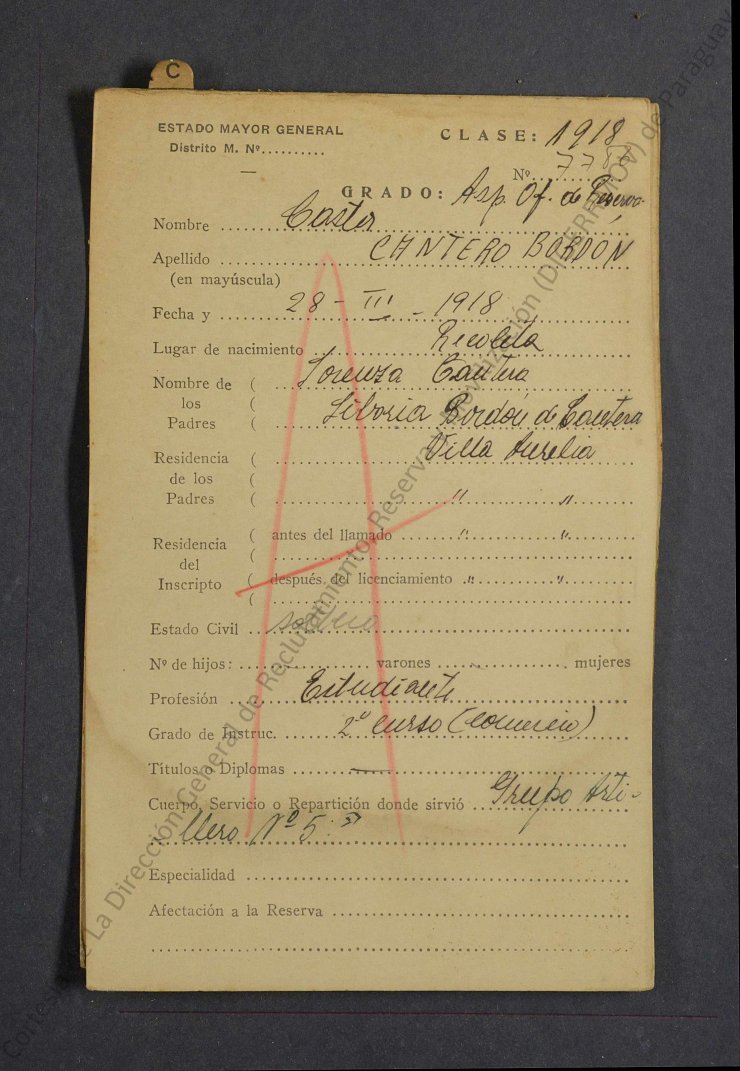 C
ESTADO MAYOR GENERAL
CLASE: 1918
Distrito M. Nº..........
Nº.......... 
GRADO: Asp. Of. de Reserva
Nombre Castor
Apellido CANTERO BORDÓN
(en mayúscula)
Fecha y 28 - III - 1918
Lugar de nacimiento Recoleta
Nombre de ( Lorenzo Cantero
los (
Padres ( Liboria Bordón de Cantero
Residencia ( Villa Aurelia
de los (
Padres ( " "
Residencia ( antes del llamado " "
del (
Inscripto ( después del licenciamiento " "
(
Estado Civil soltero
Nº de hijos: varones - mujeres
Profesión Estudiante
Grado de Instruc. 2º curso (comercio)
Títulos o Diplomas —
Cuerpo, Servicio o Repartición donde sirvió Grupo Arti-
llero Nº 5.
Especialidad
Afectación a la Reserva
Cortesía de La Dirección General de Reclutamiento, Reserva y Movilización (DIGERRMOV) de Paraguay